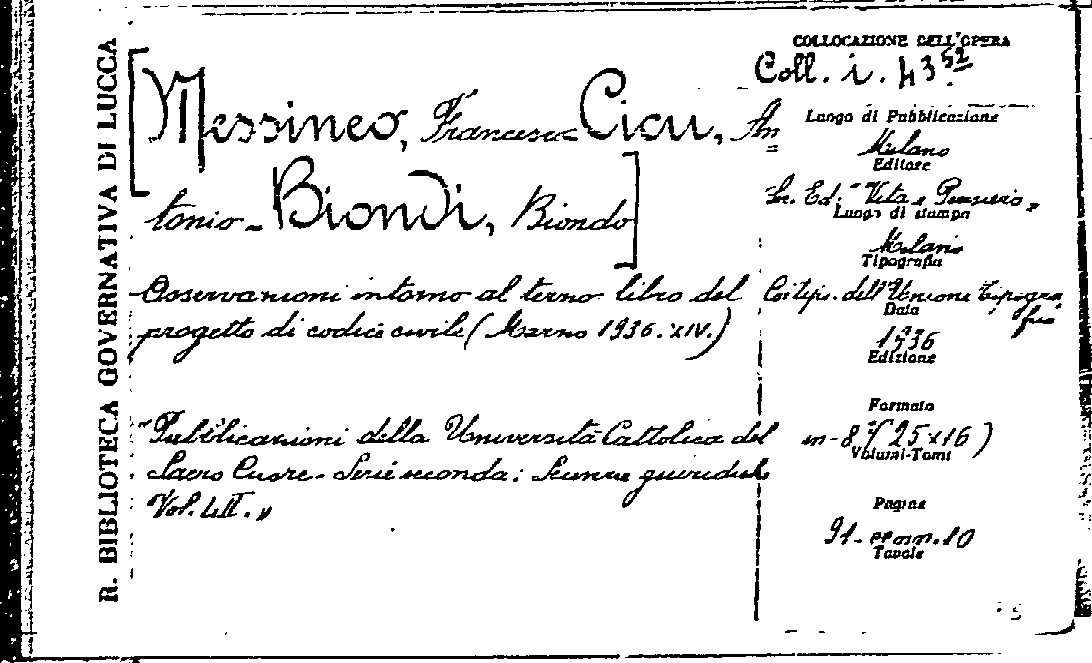 R. BIBLIOTECA GOVERNATIVA DI LUCCA
[Messineo, Francesco - Cicu, An=
tonio - Biondi, Biondo]
Osservazioni intorno al terzo libro del
progetto di codice civile (Marzo 1936. XIV.)
"Pubblicazioni della Università Cattolica del
Sacro Cuore - Serie seconda: Scienze giuridiche
Vol. LII."
COLLOCAZIONE DELL'OPERA
Coll. i. 43 52
Luogo di Pubblicazione
Milano
Editore
Soc. Ed: "Vita e Pensiero"
Luogo di stampa
Milano
Tipografia
dell'Unione tipogra
fica
Data
1936
Edizione
Formato
in-8° (25x16)
Volumi-Tomi
Pagine
91 - 10
Tavole